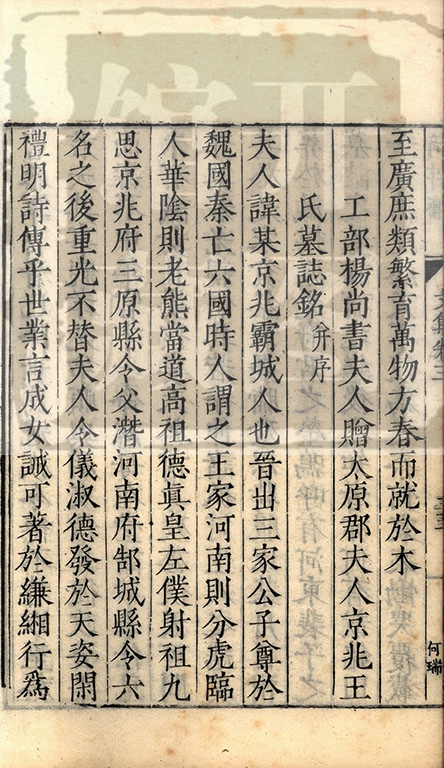 至廣庶類繁育萬物方春而就於木
工部楊尚書夫人贈大原郡夫人京兆王
氏墓誌銘并序
夫人諱某京兆霸城人也晉出三家公子尊於
魏國秦亡六國時人謂之王家河南則分虎臨
人華陰則老熊當道高祖德眞皇左僕射祖九
思京兆府三原縣令父潛河南府郜城縣令六
名之後重光不替夫人令儀淑德發於天姿閑
禮明詩傳乎世業言成女誡可著於縑緗行爲
何瑞